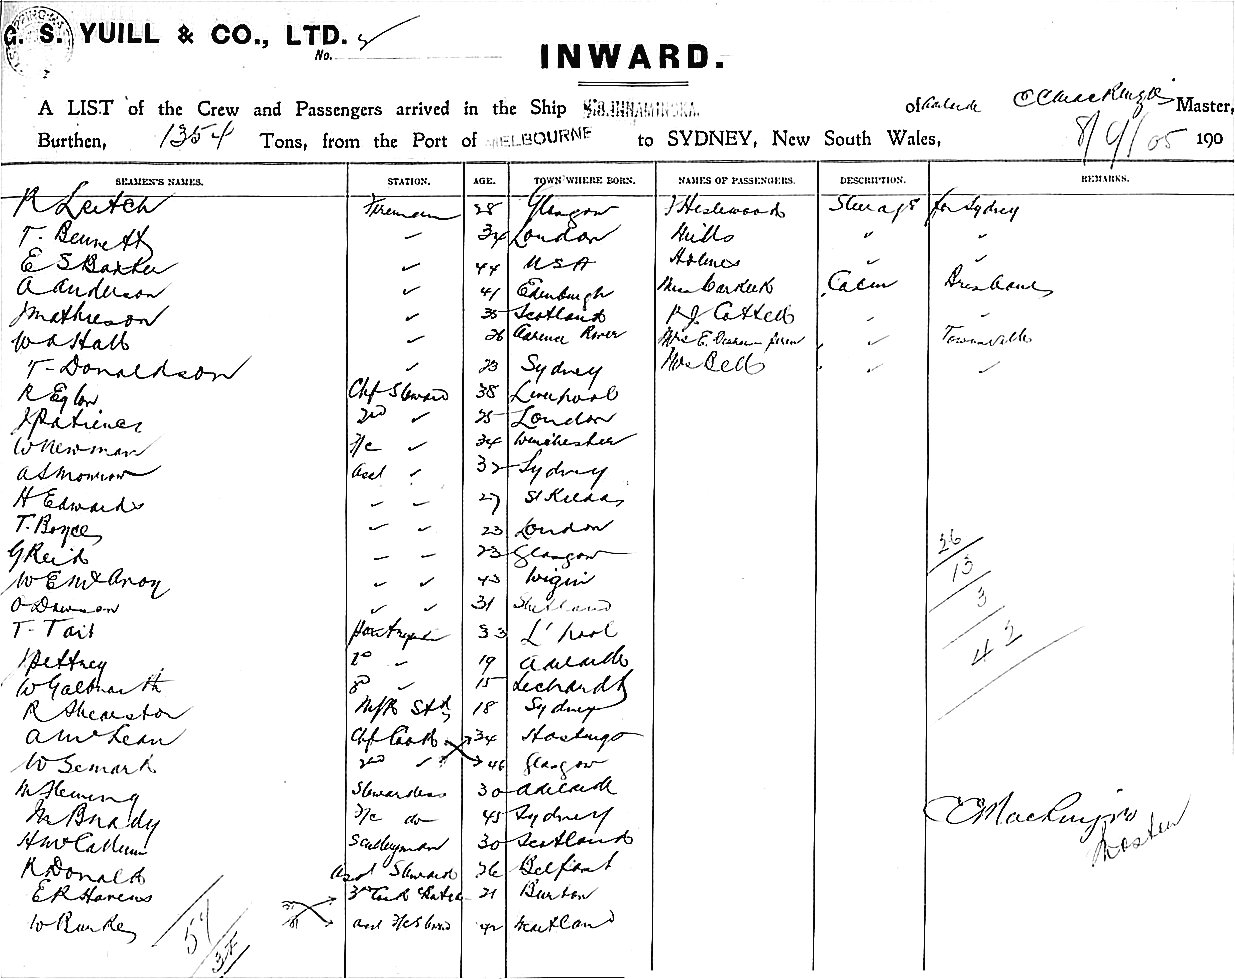 G. S. YUILL & CO., LTD.
No.
INWARD.
A LIST of the Crew and Passengers arrived in the Ship INNAMINCKA of Adelaide C C MacKenzie Master,
Burthen, 1354 Tons, from the Port of MELBOURNE to SYDNEY, New South Wales, 190
SEAMEN'S NAMES. STATION. AGE. TOWN WHERE BORN. NAMES OF PASSENGERS. DESCRIPTION. REMARKS.
R Leitch Fireman 28 Glasgow J Heslewood Steerage for Sydney
T. Bennett ✓ 34 London Mills " "
E S Baxter ✓ 44 USA Holmes ✓ ✓
A Anderson ✓ 41 Edinburgh Miss Cabin Brisbane
J Mathieson ✓ 35 Scotland Cottell " "
W A Hall ✓ 26 Clarence River Mrs E. ✓ Townsville
T- Donaldson ✓ 23 Sydney Mrs Bell ✓ ✓
R Eglon Chf Steward 38 Liverpool
J Patience 2nd ✓ 25 London
W Newman F/c ✓ 34 Winchester
A S Morrison Asst ✓ 32 Sydney
H Edwards 27 St Kilda
T. Boyce 23 London
G Reid 23 Glasgow 26
W E McAvoy ✓ ✓ 43 Wigin 13
O Dawson ✓ ✓ 31 Shetland 3
T- Tait Pantryman 33 L'pool 42
J Pettney 2nd 19 Adelaide
W Galbraith 3rd ✓ 15 Leichardt
R Shearston M/R Std 18 Sydney
A McLean Chf Cook 34 Hastings
W Semark 2nd ✓ 46 Glasgow
M Fleming Stewardess 30 Adelaide
M Brady F/c do 45 Sydney C C MacKenzie
H McCallum Sculleryman 30 Scotland Master
R Donald Asst Steward 26 Belfast
E R Havens 3rd Cook 21 Burton
W Burke Asst F/c Stwd 42 Maitland